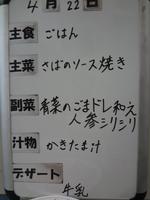 4月22日
主食 ごはん
主菜 さばのソース焼き
副菜 青菜のごまドレ和え
人参シリシリ
汁物 かきたま汁
デザート
牛乳